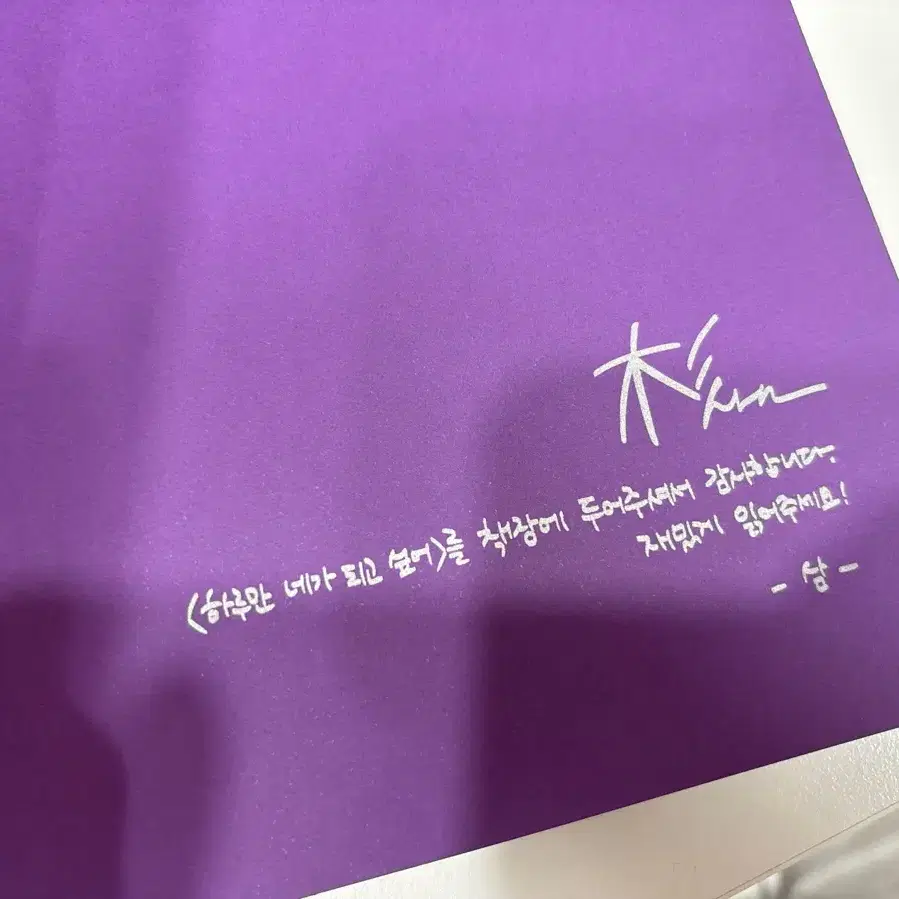 杉 사人
<하루만 네가 되고 싶어>를 책장에 두어주셔서 감사합니다.
재밌게 읽어주세요!
- 삼 -